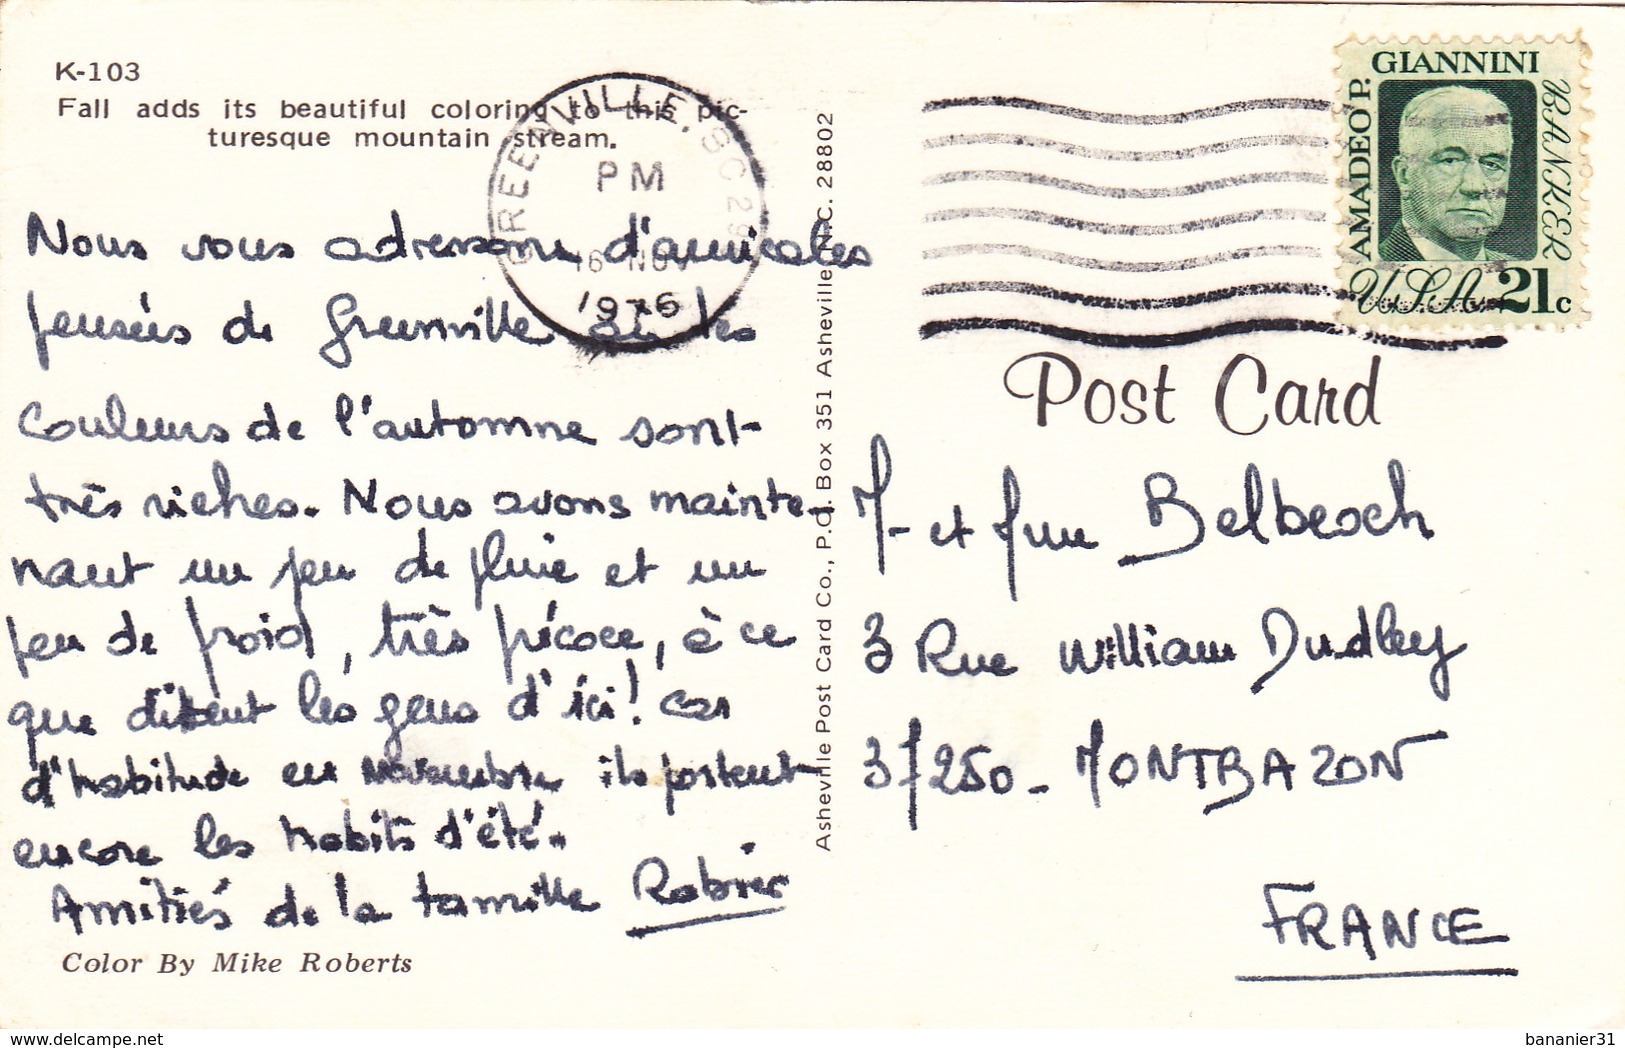 K-103
Fall adds its beautiful coloring to this pic-
turesque mountain stream.
GREENVILLE, SC 29
PM
16 NOV
1976
Nous vous adressons d'amicales
pensées de Greenville où les
couleurs de l'automne sont
très riches. Nous avons mainte-
nant un peu de pluie et un
peu de froid, très précoce, à ce
que disent les gens d'ici! car
d'habitude en novembre ils portent
encore les habits d'été.
Amitiés de la famille Robier
Color By Mike Roberts
Asheville Post Card Co., P.O. Box 351 Asheville, N.C. 28802
AMADEO P.
GIANNINI
BANKER
USA 21c
Post Card
M- et Mme Belbeoch
3 Rue William Dudley
37250 - MONTBAZON
FRANCE
bananier31